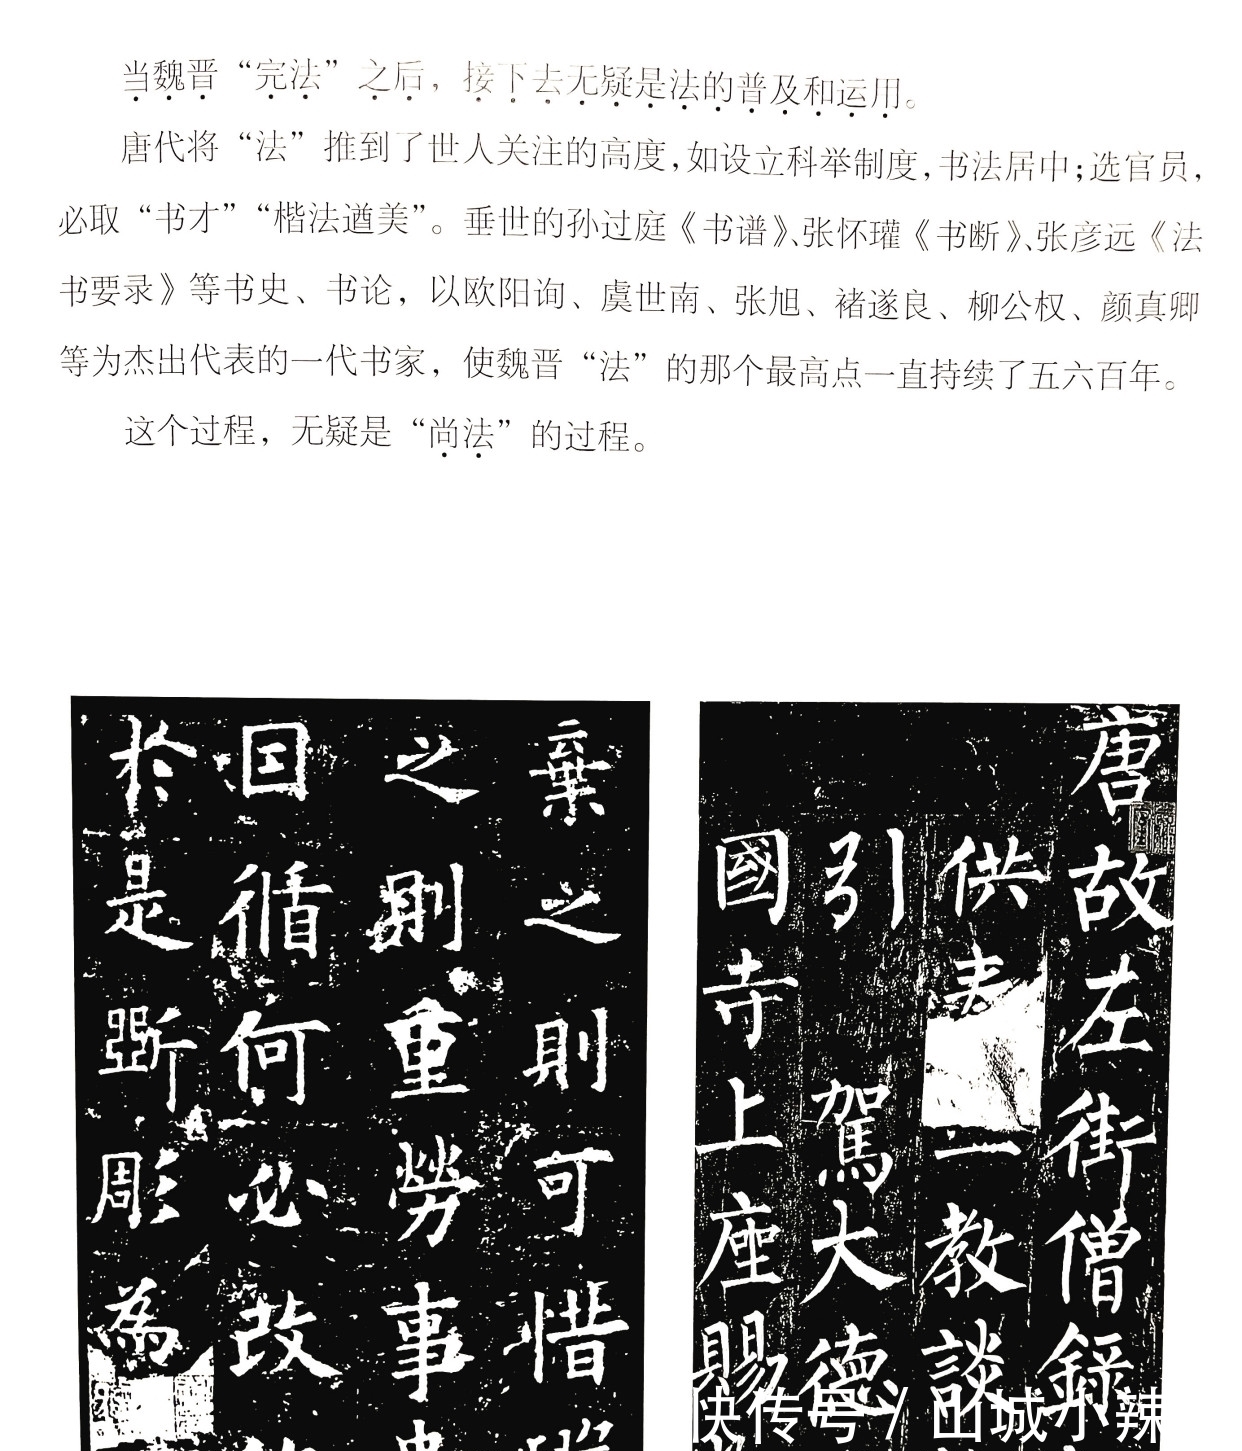 当魏晋“完法”之后，接下去无疑是法的普及和运用。
唐代将“法”推到了世人关注的高度，如设立科举制度，书法居中；选官员，
必取“书才”“楷法遒美”。垂世的孙过庭《书谱》、张怀瓘《书断》、张彦远《法
书要录》等书史、书论，以欧阳询、虞世南、张旭、褚遂良、柳公权、颜真卿
等为杰出代表的一代书家，使魏晋“法”的那个最高点一直持续了五六百年。
这个过程，无疑是“尚法”的过程。
棄之則可惜
之則重勞事
因循何必改
於是斵彫為
唐故左街僧錄
供表一教談
引駕大德
國寺上座賜
快传号 / 山城小辣